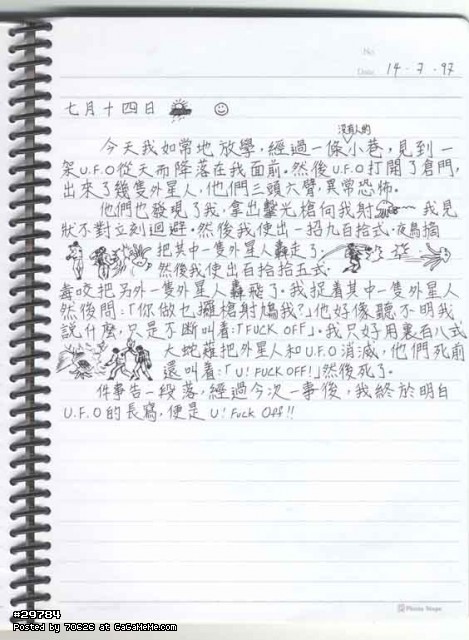 No.
Date 14 · 7 · 97
七月十四日
今天我如常地放學,經過一條沒有人的小巷,見到一
架U.F.O從天而降落在我面前。然後U.F.O打開了倉門,
出來了幾隻外星人,他們三頭六臂,異常恐怖。
他們也發現了我,拿出鐳光槍向我射 我見
狀不對立刻迴避。然後我使出一招九百拾式·夜鳥摘
把其中一隻外星人轟走了。
然後我使出百拾拾五式·
毒咬把另外一隻外星人轟飛了。我捉着其中一隻外星人
然後問:「你做乜攞槍射鳩我?」他好像聽不明我
說什麼,只是不斷叫着:「FUCK OFF」。我只好用裏百八式
大蛇薙把外星人和U.F.O消滅,他們死前
還叫着:「U! FUCK OFF!」然後死了。
件事告一段落,經過今次一事後,我終於明白
U.F.O的長寫,便是 U! Fuck Off!!
#29784
Posted by 70626 at GaGaHeHe.com